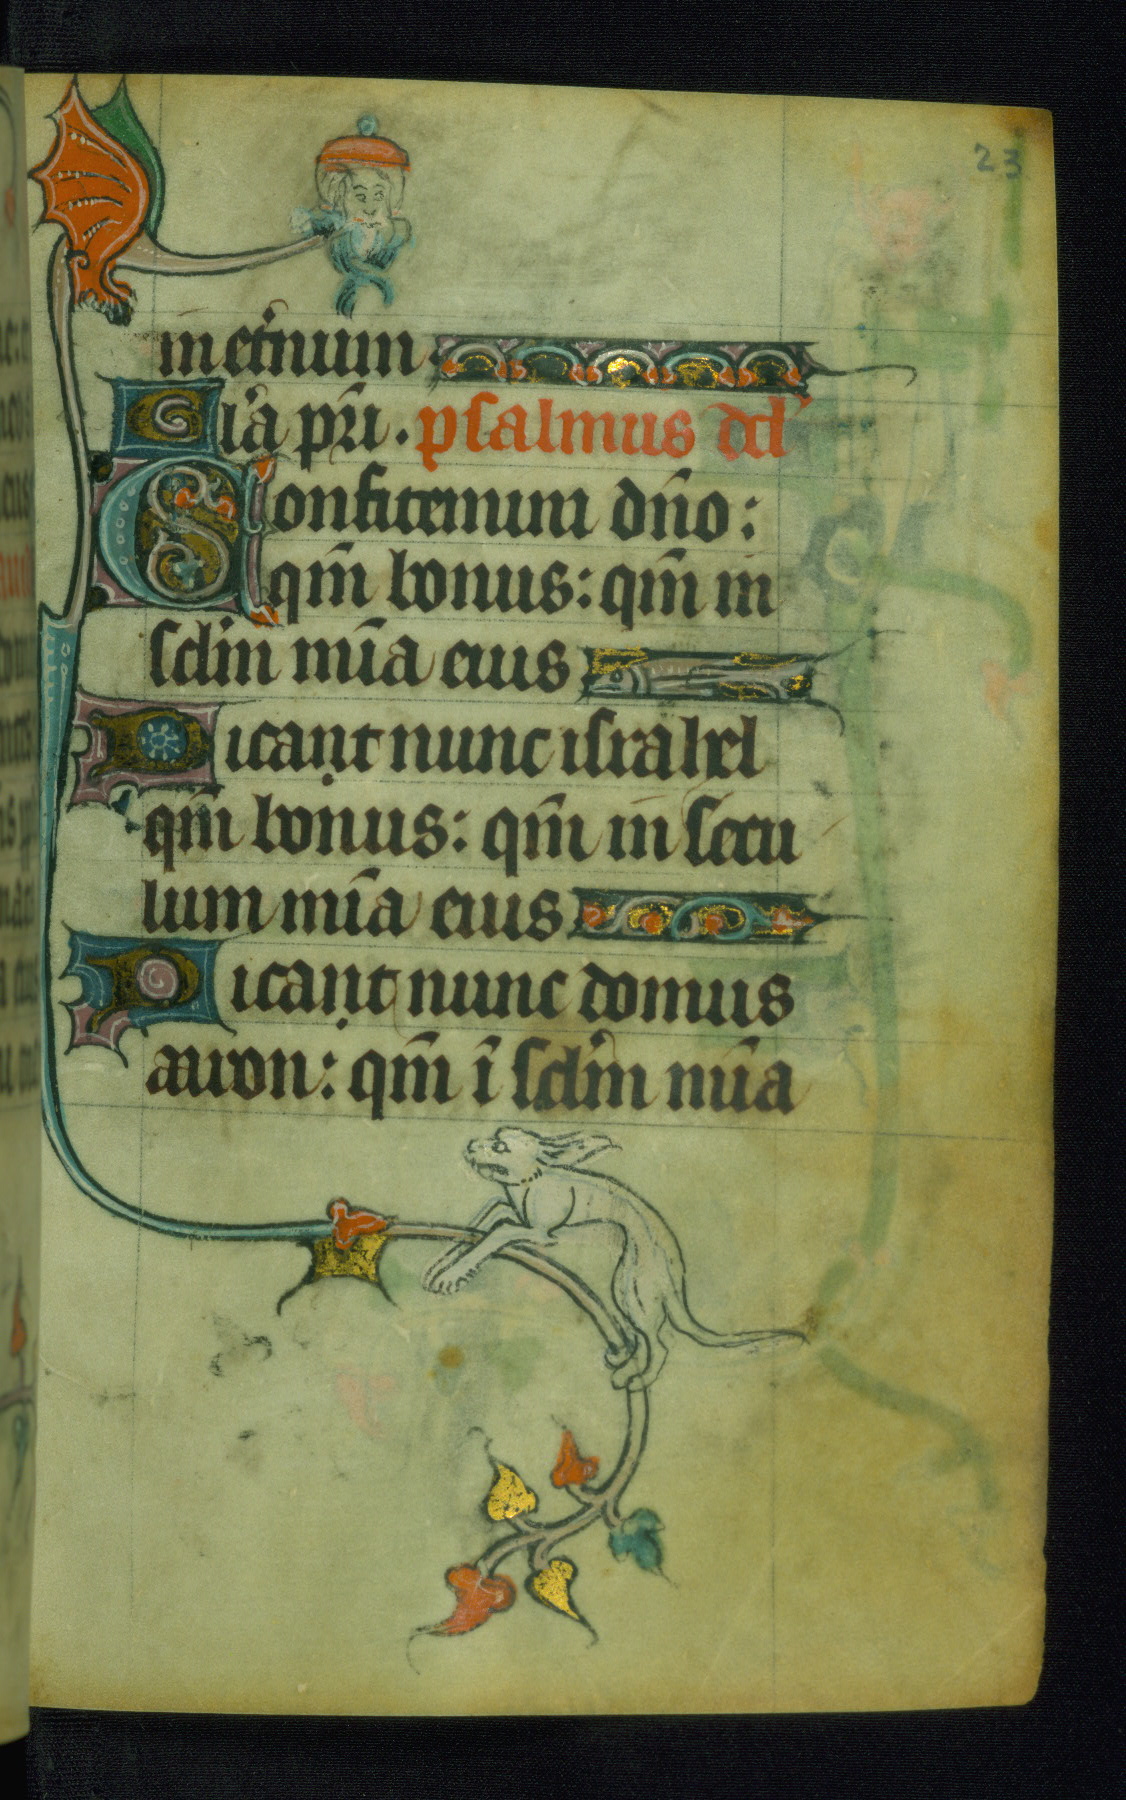 23
in et̾num
Gl'a p̄ri . psalmus dd'
Confitemini dn̄o :
qm̄ bonus : qm̄ in
sclm̄ mīa eius
Dicant nunc israhel
qm̄ bonus : qm̄ in secu
lum mīa eius
Dicant nunc domus
aaron : qm̄ ī sclm̄ mīa